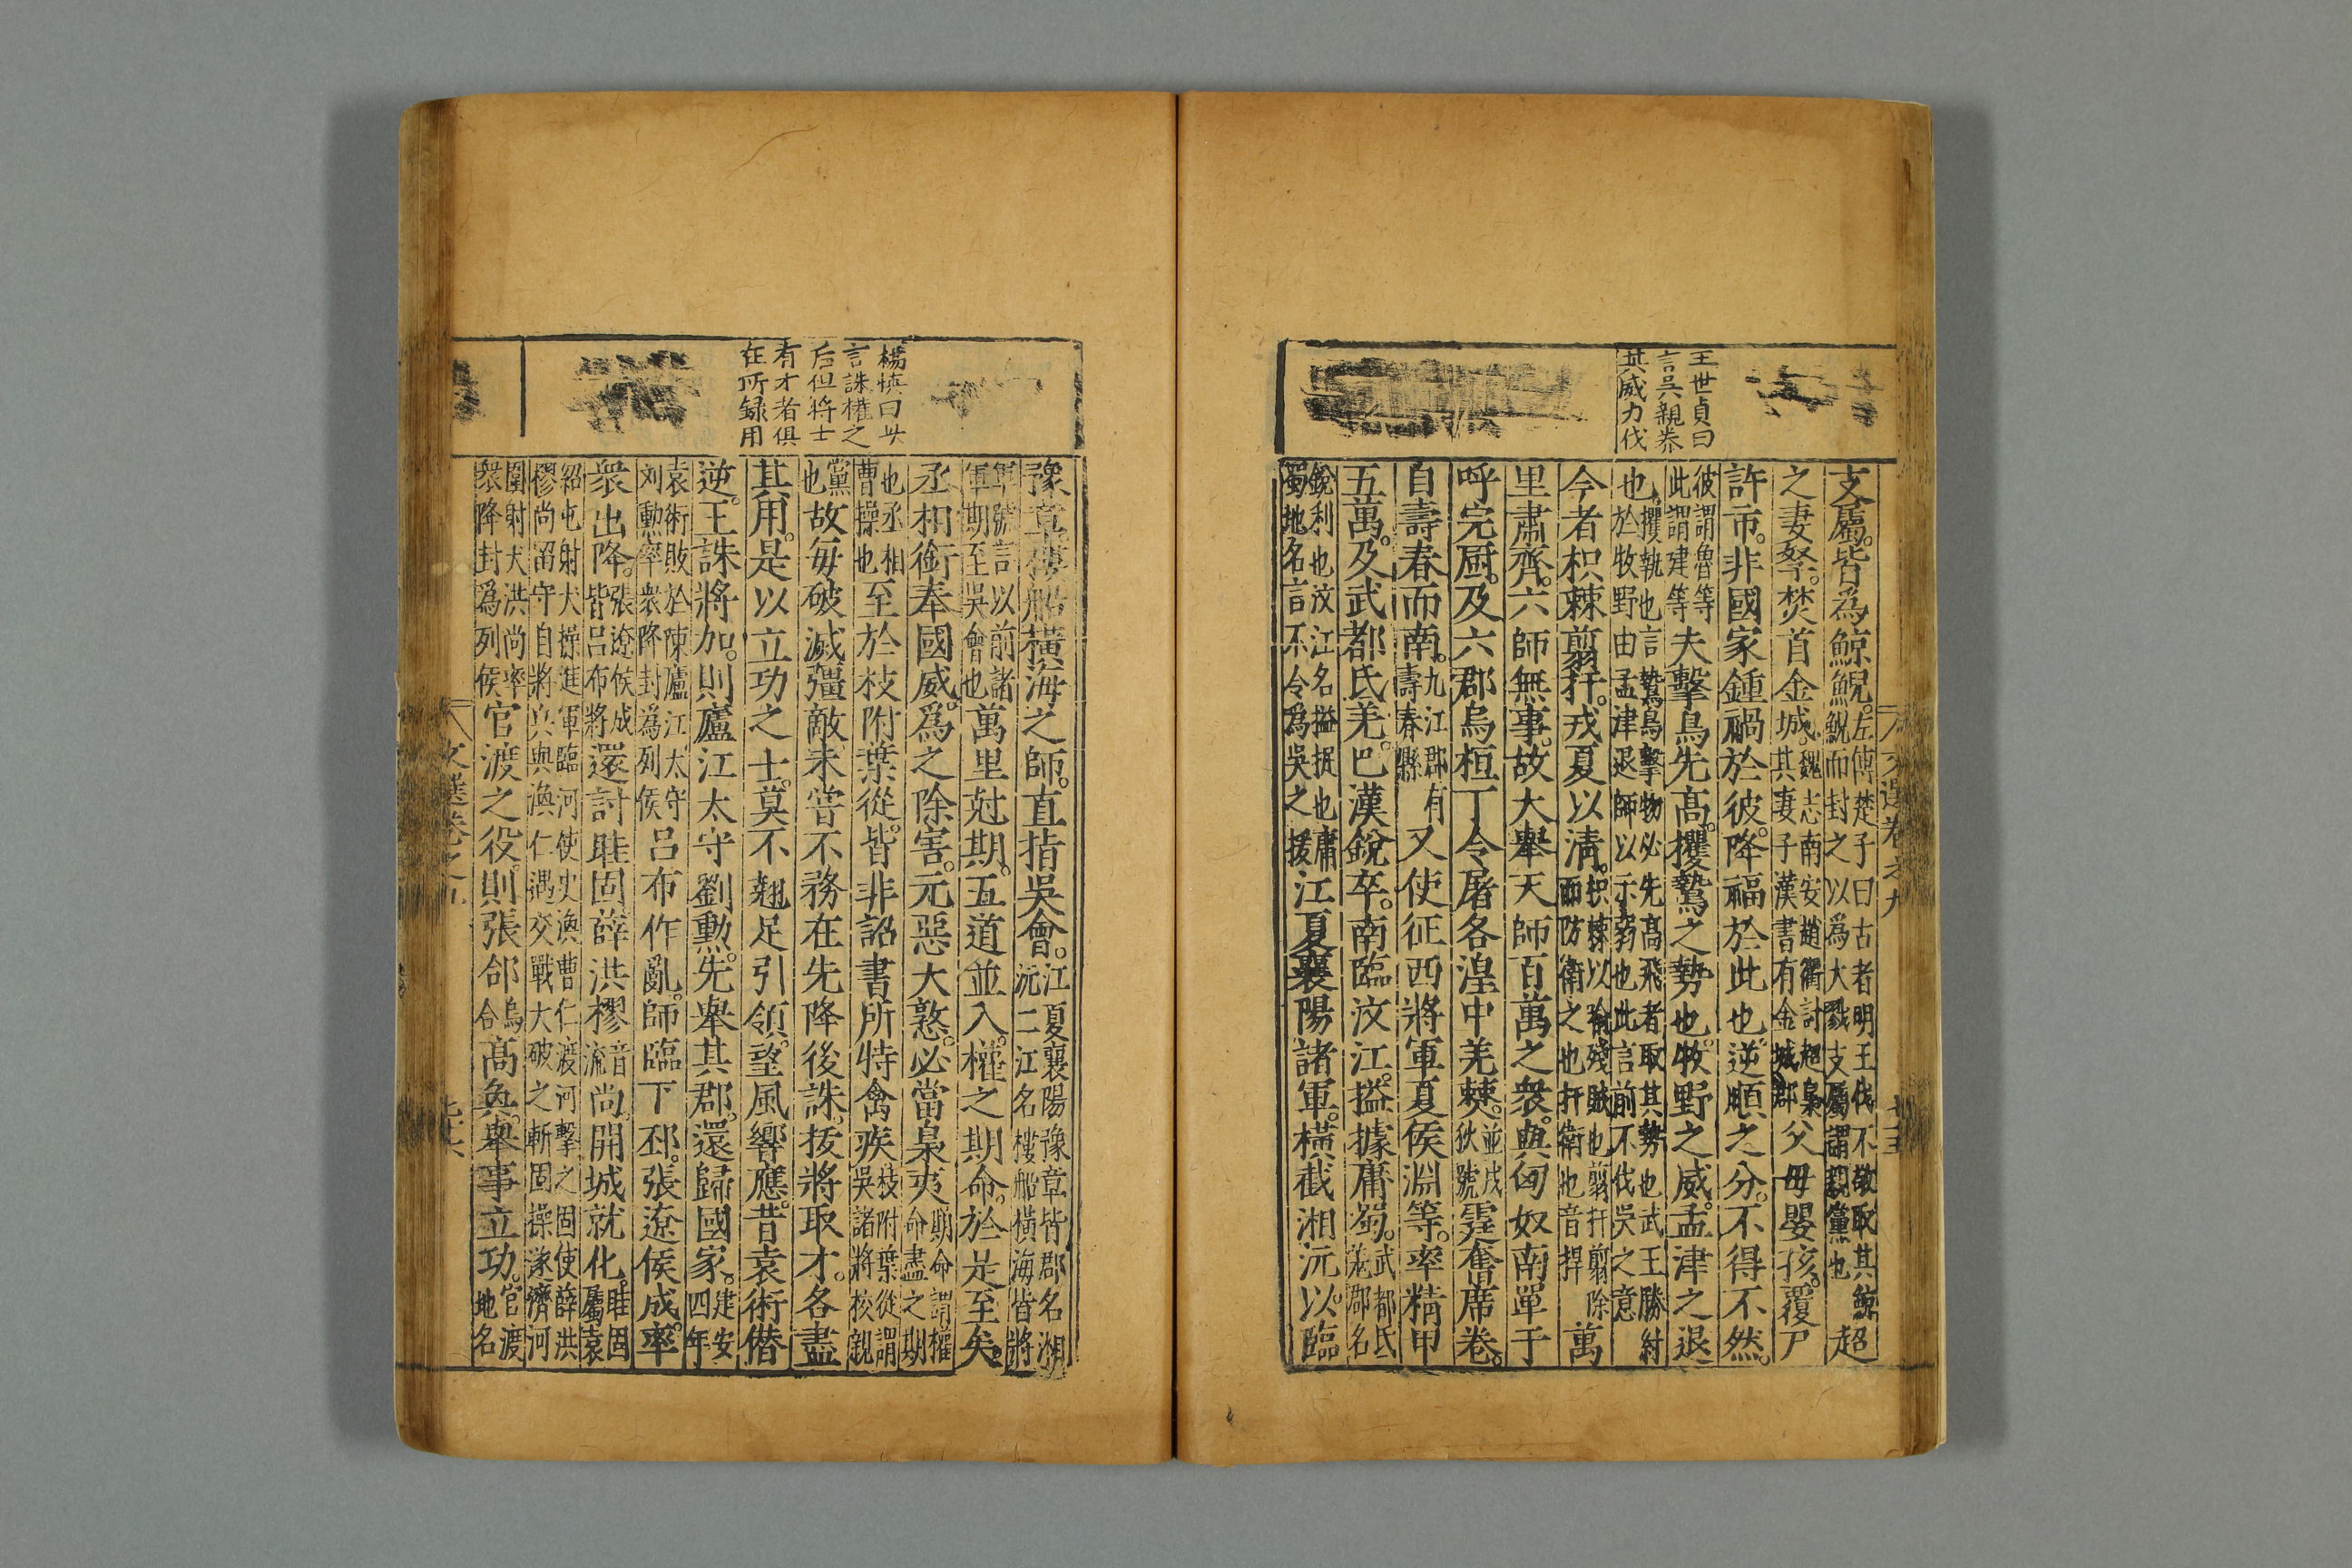 王世貞曰
言吳親恭
其威力伐
支屬皆為鯨鯢左傳楚子曰古者明王伐不敬取其鯨鯢而封之以為大戮支屬謂親黨也超
之妻孥焚首金城魏志南安趙衢討超梟其妻子漢書有金城郡父母嬰孩覆尸
許市非國家鍾禍於彼降福於此也逆順之分不得不然
彼謂魯等此謂建等夫擊鳥先高攫鷙之勢也牧野之威孟津之退
也攫執也言鷙鳥擊物必先高飛者取其勢也武王勝紂於牧野由孟津退師以示弱也此言前不伐吳之意
今者枳棘翦扞戎夏以清枳棘以喻殘賊也翦扞翦除而防衛之也扞衛也音捍萬
里肅齊六師無事故大舉天師百萬之衆與匈奴南單于
呼完廚及六郡烏桓丁令屠各湟中羌僰並戎狄號霆奮席卷
自壽春而南九江郡有壽春縣又使征西將軍夏侯淵等率精甲
五萬及武都氐羌巴漢銳卒南臨汶江搤據庸蜀武都氐羌郡名
銳利也汶江名搤捉也庸蜀地名言不令為吳之援江夏襄陽諸軍橫截湘沅以臨
文選卷之九
豫章樓船橫海之師直指吳會江夏襄陽豫章皆郡名湘沅二江名樓船橫海皆將
軍號言以前諸軍期至吳會也萬里尅期五道並入權之期命於是至矣
丞相銜奉國威為之除害元惡大憝必當梟夷期命謂權命盡之期
也丞相曹操也至於枝附葉從皆非詔書所特禽疾枝附葉從謂吳諸將校親
黨也故每破滅彊敵未嘗不務在先降後誅拔將取才各盡
其用是以立功之士莫不翹足引領望風響應昔袁術僭
逆王誅將加則廬江太守劉勳先舉其郡還歸國家建安四年
袁術敗於陳廬江太守刘勳率衆降封為列侯呂布作亂師臨下邳張遼侯成率
衆出降張遼侯成皆呂布將還討眭固薛洪樛音流尚開城就化眭固屬袁
紹屯射犬操進軍臨河使史渙曹仁渡河擊之固使薛洪樛尚留守自將兵與渙仁遇交戰大破之斬固操遂濟河
圍射犬洪尚率衆降封為列侯官渡之役則張郃烏合高奐舉事立功官渡地名
楊慎曰此
言誅權之
后但将士
有才者俱
在所録用
文選卷之九